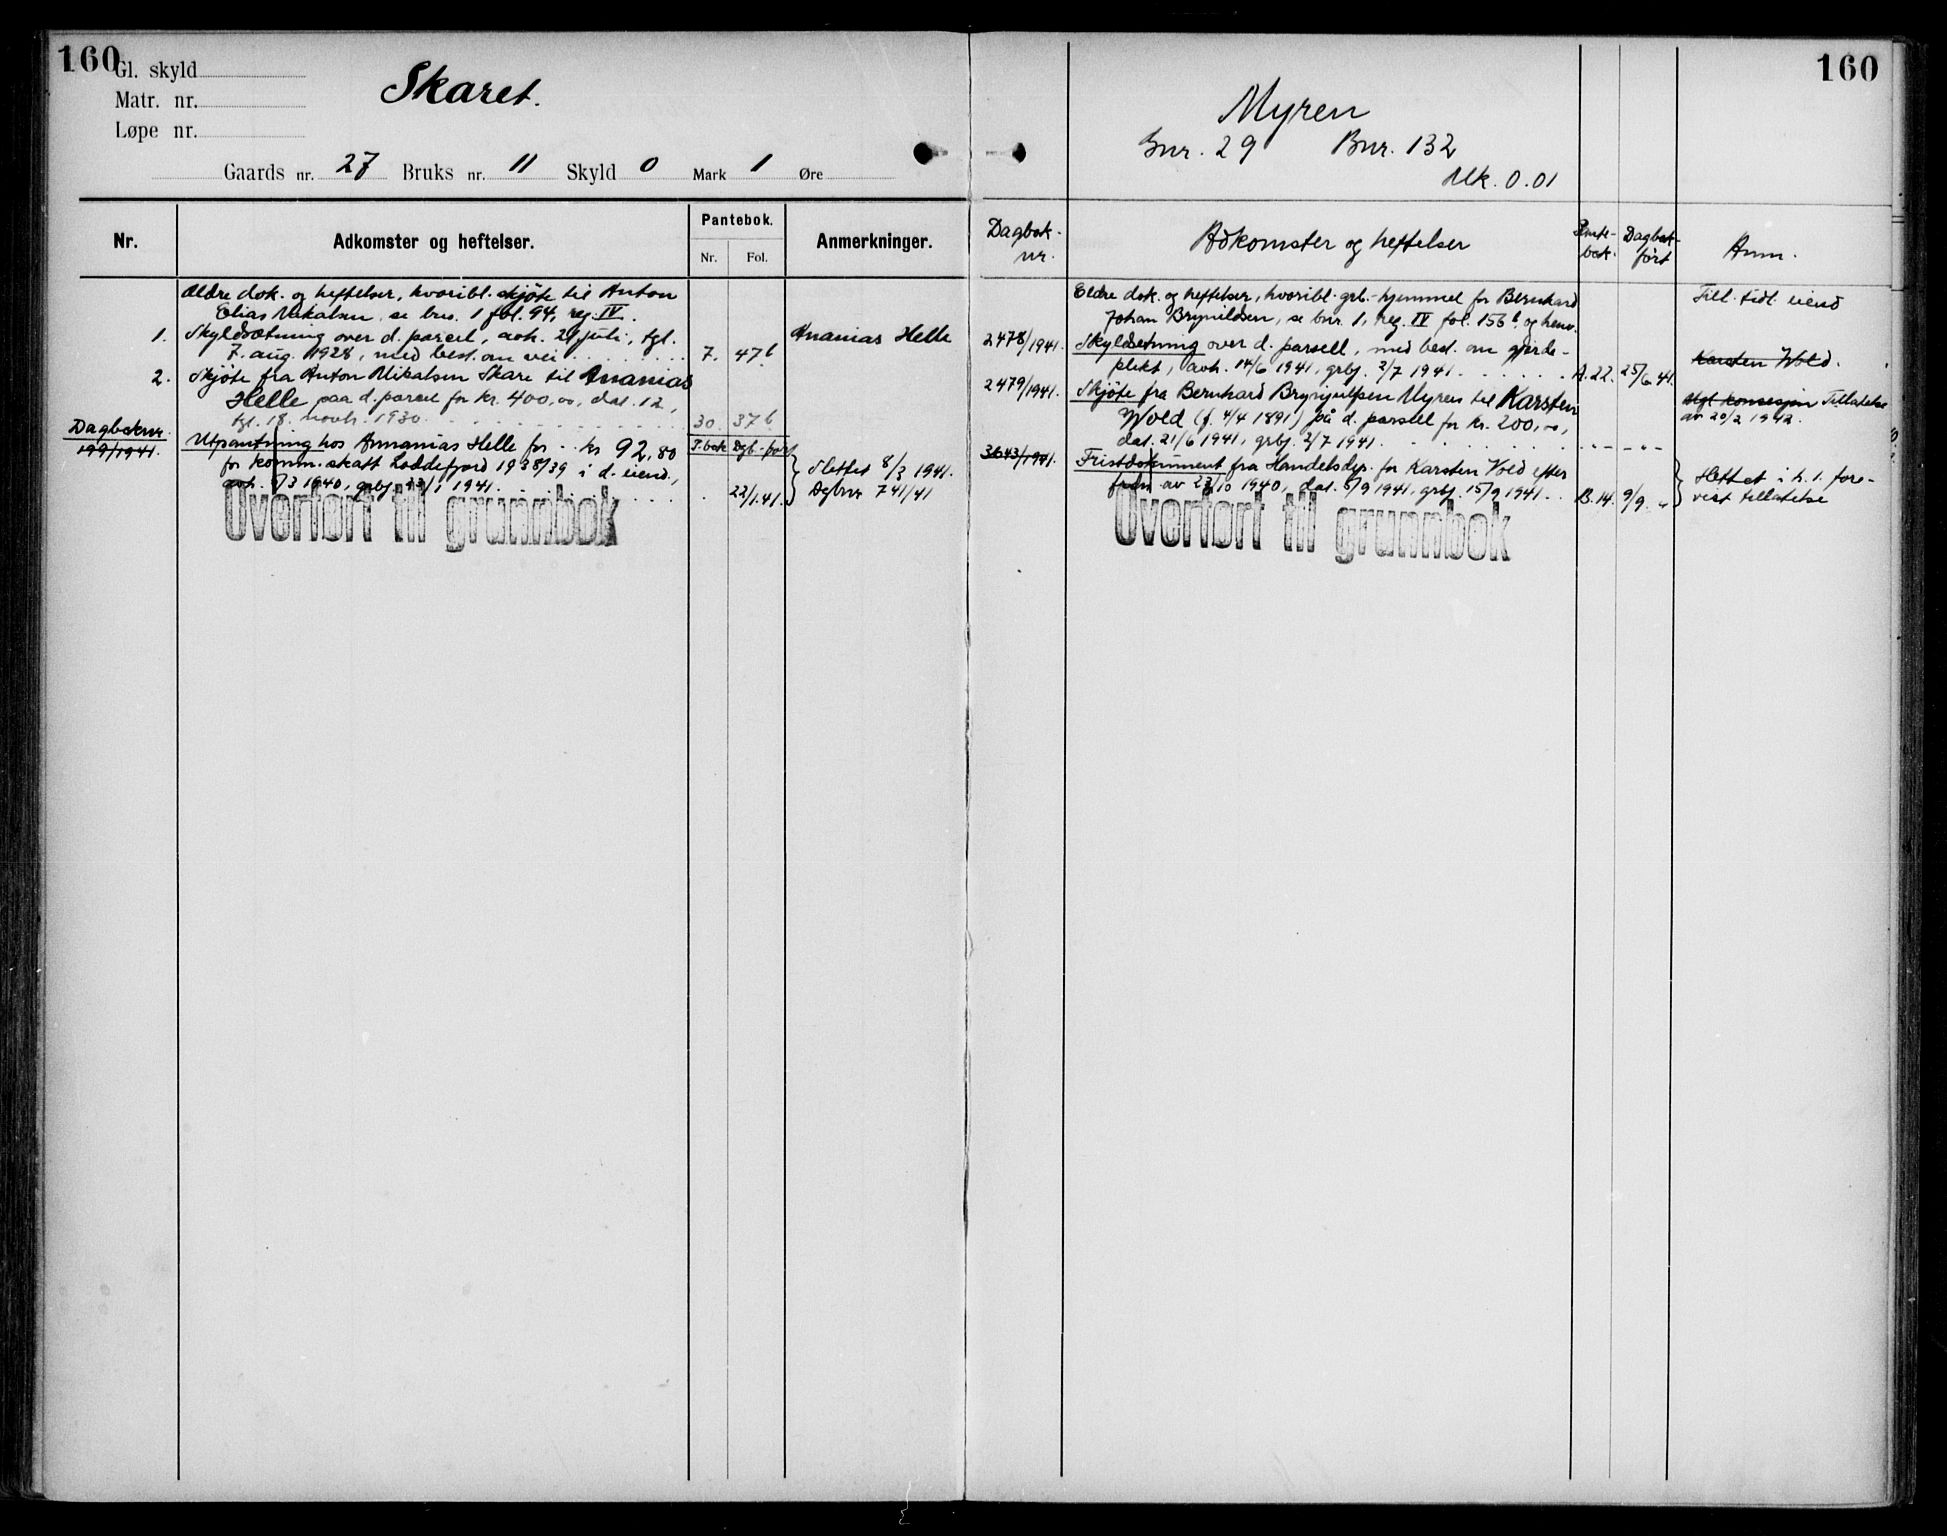 160
Gl. skyld
Matr. nr.
Løpe nr.
Skaret.
Gaards nr. 27 Bruks nr. 11 Skyld 0 Mark 1 Øre
Nr.
Adkomster og heftelser.
Pantebok.
Nr. Fol.
Anmerkninger.
Ældre dok. og heftelser, hvoribl. skjøte til Anton
Elias Mikalsen, se bno. 1 fol. 94, reg. IV.
1. Skyldsætning over d. parcel, avh. juli, tgl.
7. aug. 1928, med best. om vei 7. 47b
Ananias Helle
2. Skjøte fra Anton Mikalsen Skare til Ananias
Helle paa d. parcel for kr. 400,00, dat. 12,
tgl. 18. novbr. 1930. 30. 37b
Dagboknr.
199/1941.
Utpantning hos Annanias Helle for kr 92,80
P.bok Dgb.-ført
for komm.skatt Loddefjord 1938/39 i d. eiend.,
avh. /3 1940, grbf. /1 1941. 22/1.41.
Slettet 8/3 1941.
Dgbnr 741/41
Overført til grunnbok
160
Myren
Gnr. 29 Bnr. 132
Mk. 0.01
Dagbok-
nr.
Adkomster og heftelser
Pante-
bok.
Dagbok-
ført
Anm.
Eldre dok. og heftelser, hvoribl. grb.-hjemmel for Bernhard
Johan Brynildsen, se bnr. 1, reg. IV fol. 156b, og henv.
Till. tidl. eiend
2478/1941. Skyldsetning over d. parsell, med best. om gjerde-
plikt, avh. 14/6 1941, grbf. 2/7 1941. A.22. 25/6 41.
Karsten Wold.
2479/1941. Skjøte fra Bernhard Brynjulfsen Myren til Karsten
Wold (f. 4/4 1891) på d. parsell for kr. 200,00,
dat. 21/6 1941, grbf. 2/7 1941. - " - - " -
konsesjon Tillatelse
av 20/2 1942.
3643/1941. Fristdokument fra Handelsdep. for Karsten Vold efter
av 23/10 1940, dat. 5/9 1941, grbf. 15/9 1941. B.14. 9/9 "
Slettet i h. t. fore-
vist tillatelse
Overført til grunnbok